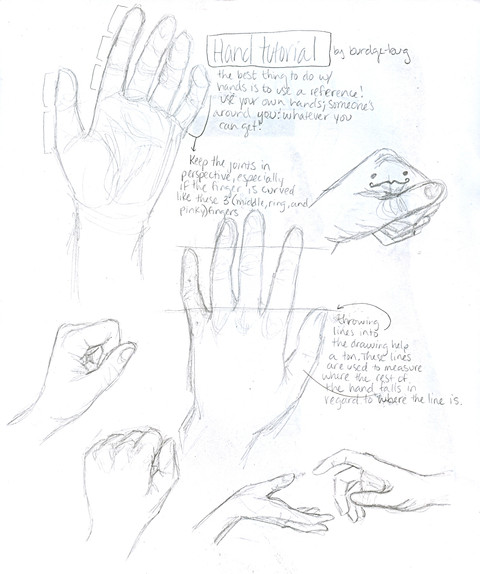 Hand tutorial
by burdge-bug
the best thing to do w/
hands is to use a reference!
use your own hands; someones
around you: whatever you
can get!
Keep the joints in
perspective, especially
if the finger is curved
like those 3 (middle, ring, and
pinky) fingers
throwing
lines into
the drawing help
a ton. These lines
are used to measure
where the rest of
the hand falls in
regard to where the line is.